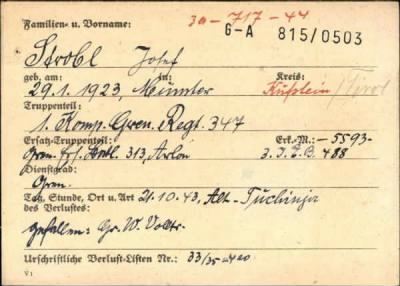 Familien- u. Vorname: 30-717-44 G-A 815/0503
Strobl Josef
geb. am: in: Kreis:
29.1.1923, Münster Kufstein /Tirol
Truppenteil:
1. Komp. Gren. Regt. 347
Ersatz-Truppenteil: Erk.-M.: -5593-
Gren. Ers. Batl. 313, Arlon 3. I.E.B. 488
Dienstgrad:
Gren.
Tag, Stunde, Ort u. Art 21.10.43, Alt-Tuchinja
des Verlustes:
gefallen: Gr. W. Volltr.
Urschriftliche Verlust-Listen Nr.: 33/35-400
V1